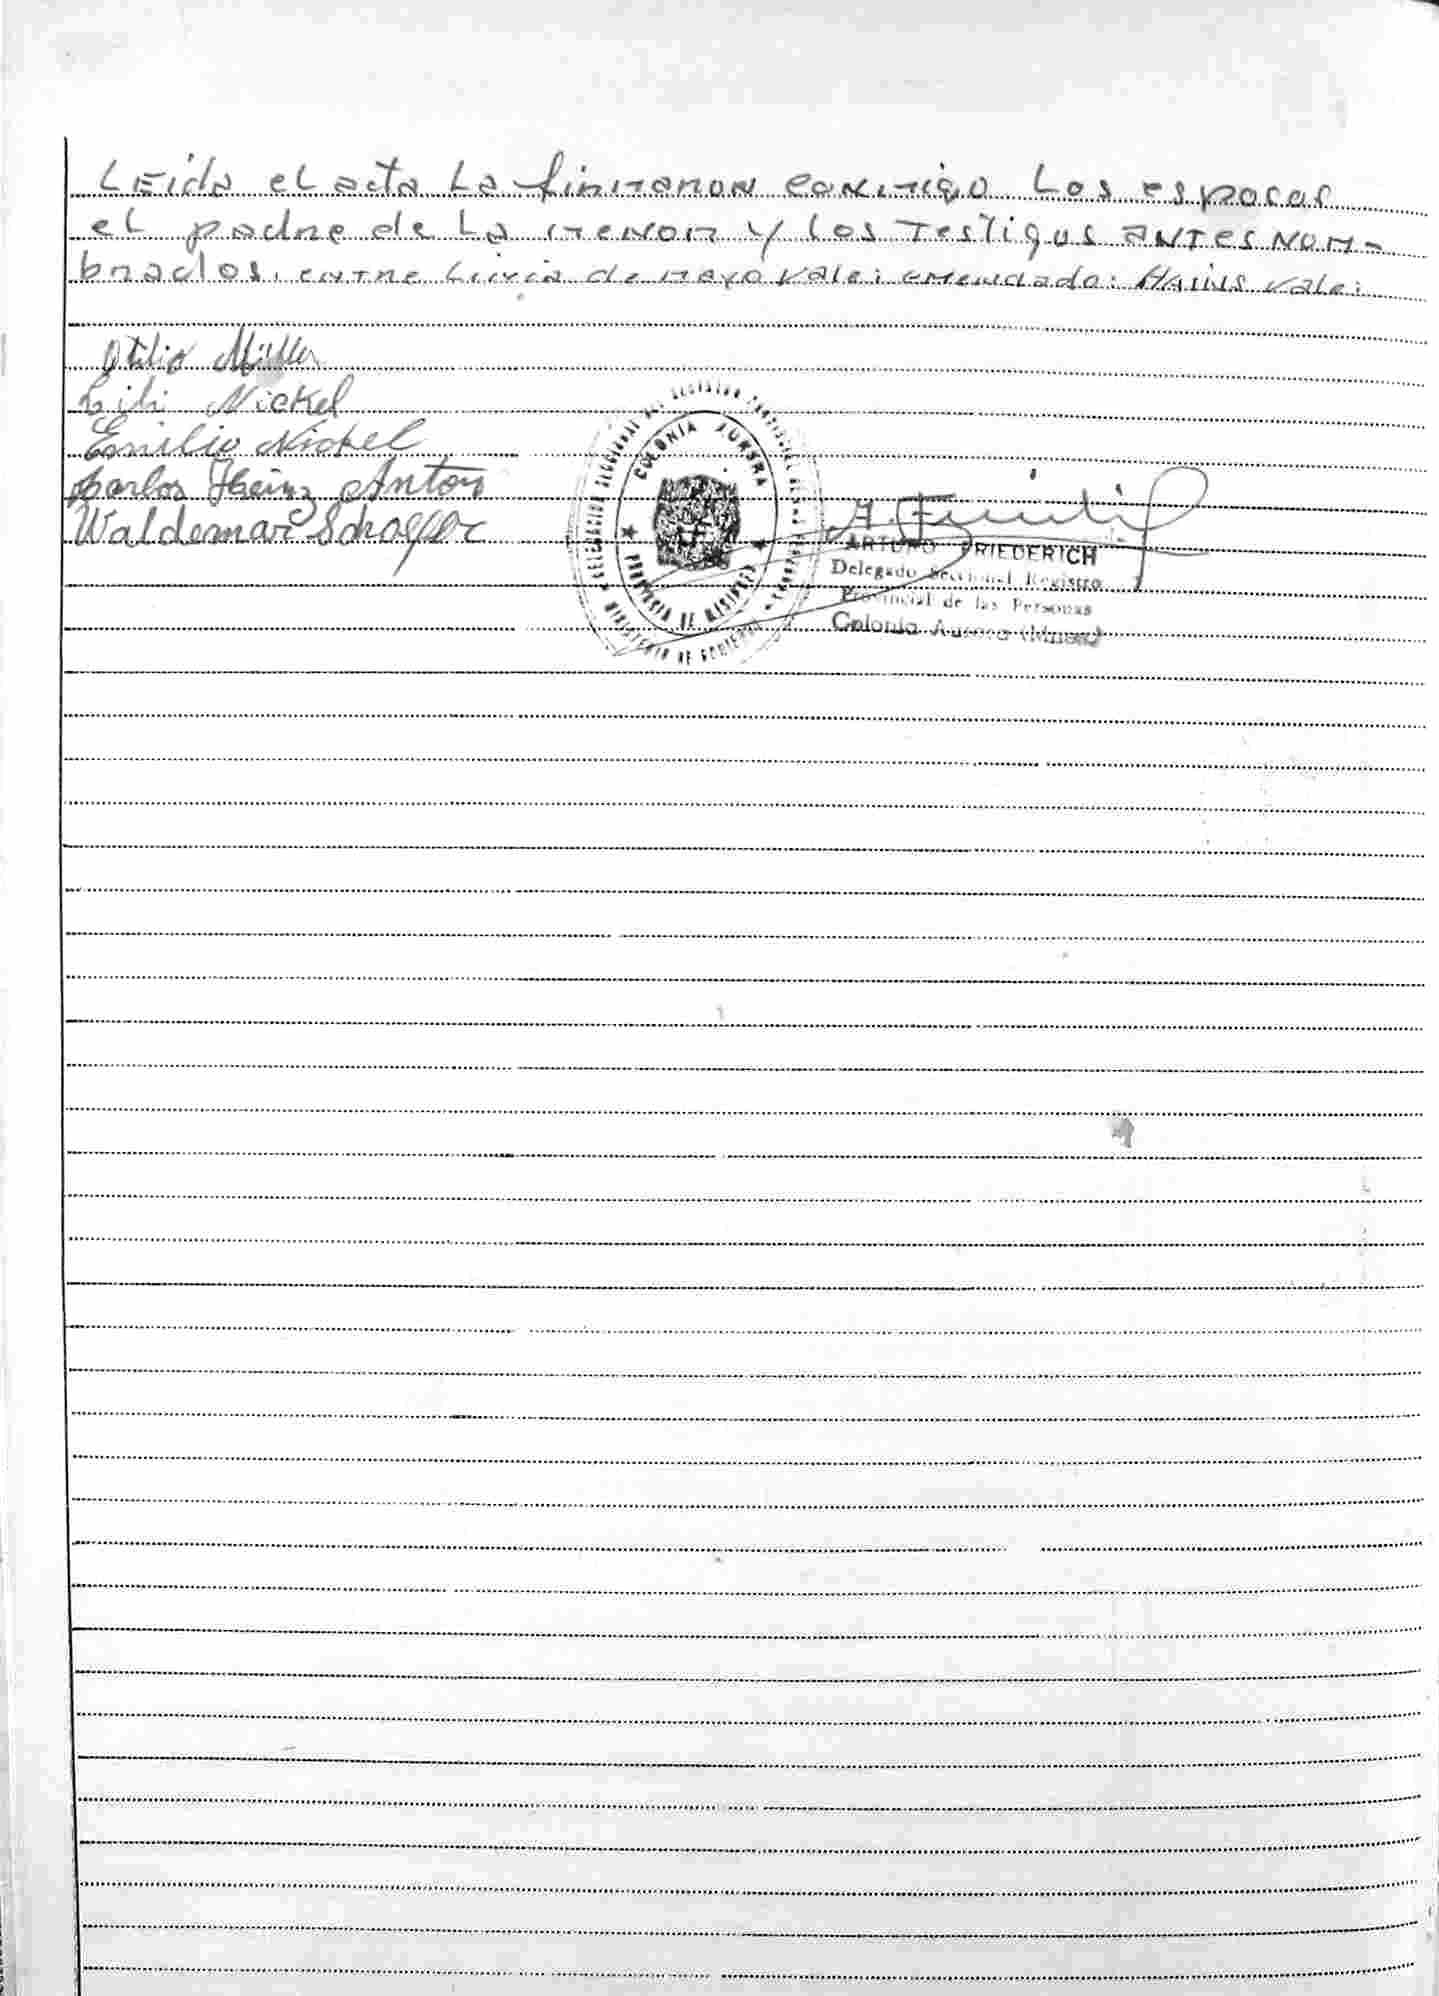 Leida el acta la firmaron conmigo los esposos
el padre de la menor y los testigos antes nom-
brados. entre linia de mayo vale: emendado: Hains vale:
Otilio Müller
Lili Nickel
Emilio Nickel
Carlos Heinz Anton
Waldemar Schaffer
DELEGACION SECCIONAL DEL REGISTRO PROVINCIAL DE LAS PERSONAS
COLONIA AURORA
PROVINCIA DE MISIONES
MINISTERIO DE GOBIERNO
A. Friederich
ARTURO FRIEDERICH
Delegado Seccional Registro
Provincial de las Personas
Colonia Aurora (Mnes)